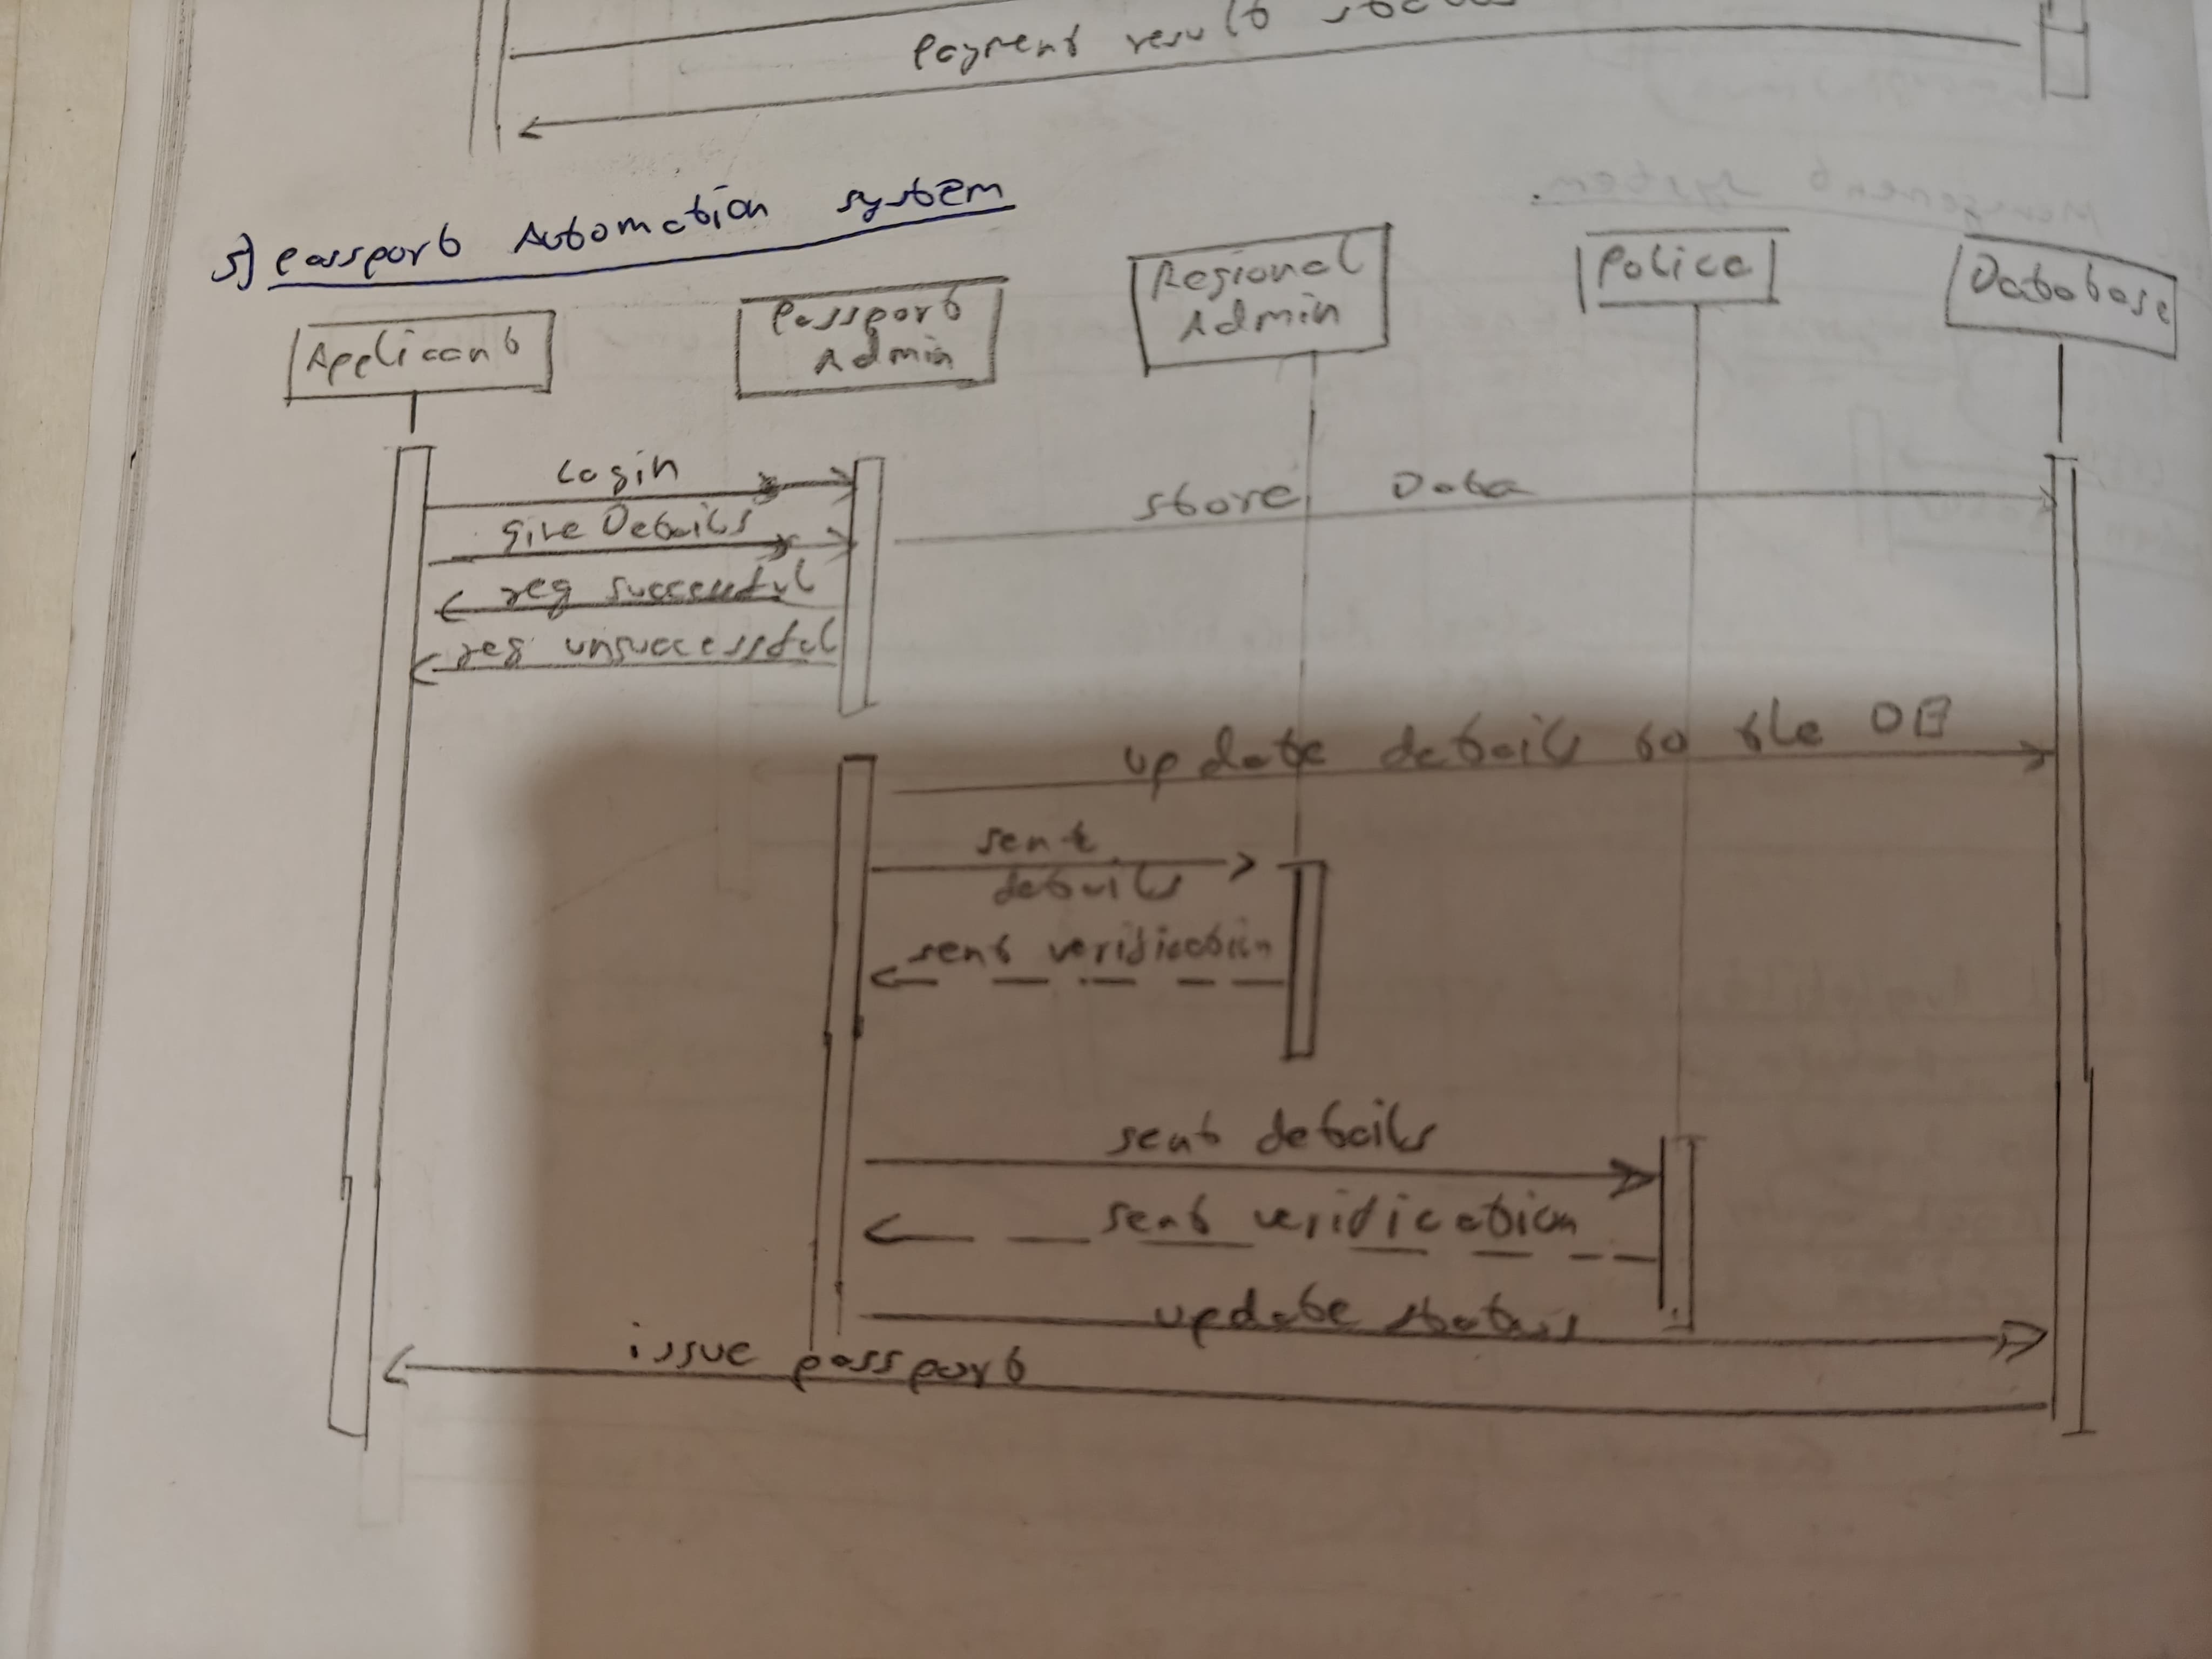 Payment result status
5) Passport Automation system
Applicant
Passport
Admin
Regional
Admin
Police
Database
Login
give Details
reg successful
reg unsuccessful
store Data
update details to the DB
sent
details
sent verification
sent details
sent verification
update status
issue passport